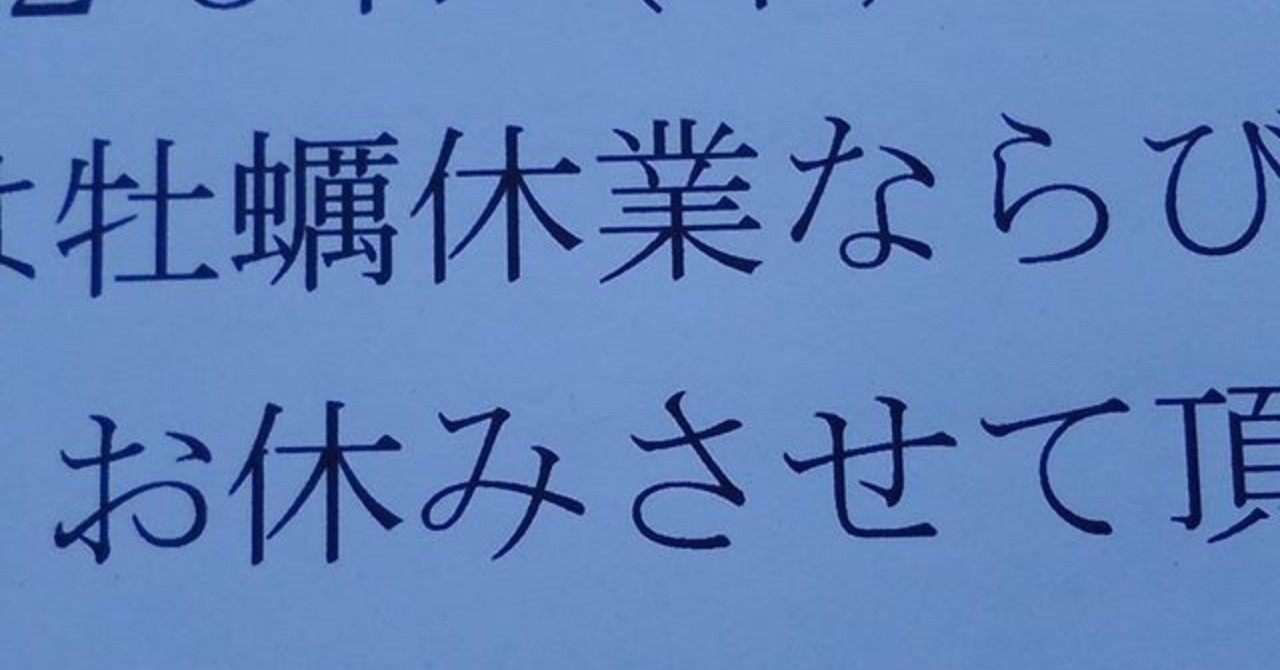 牡蠣休業ならび
お休みさせて頂